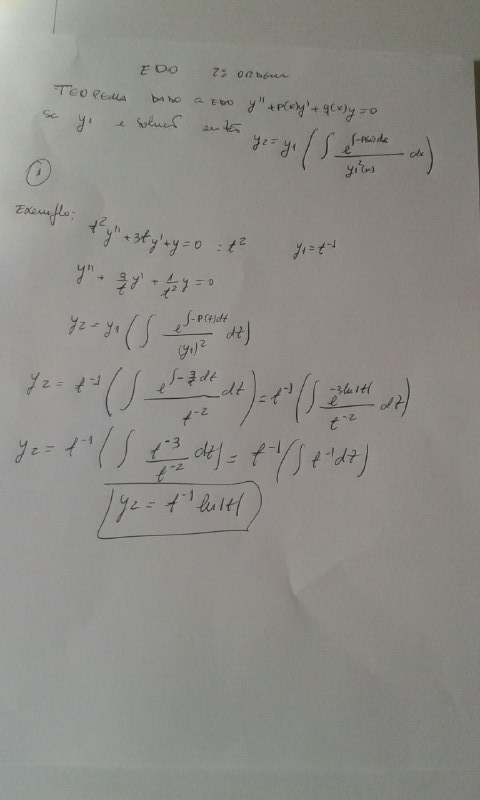 EDO 2ª ORDEM
TEOREMA DADO A EDO y'' + p(x)y' + q(x)y = 0
se y₁ é solução então y₂ = y₁ ( ∫ e^(∫-P(x)dx) / y₁²(x) dx )
①
Exemplo: t²y'' + 3ty' + y = 0 : t² y₁ = t⁻¹
y'' + 3/t y' + 1/t² y = 0
y₂ = y₁ ( ∫ e^(∫-P(t)dt) / (y₁)² dt )
y₂ = t⁻¹ ( ∫ e^(∫-3/t dt) / t⁻² dt ) = t⁻¹ ( ∫ e^(-3ln|t|) / t⁻² dt )
y₂ = t⁻¹ ( ∫ t⁻³ / t⁻² dt ) = t⁻¹ ( ∫ t⁻¹ dt )
y₂ = t⁻¹ ln|t|